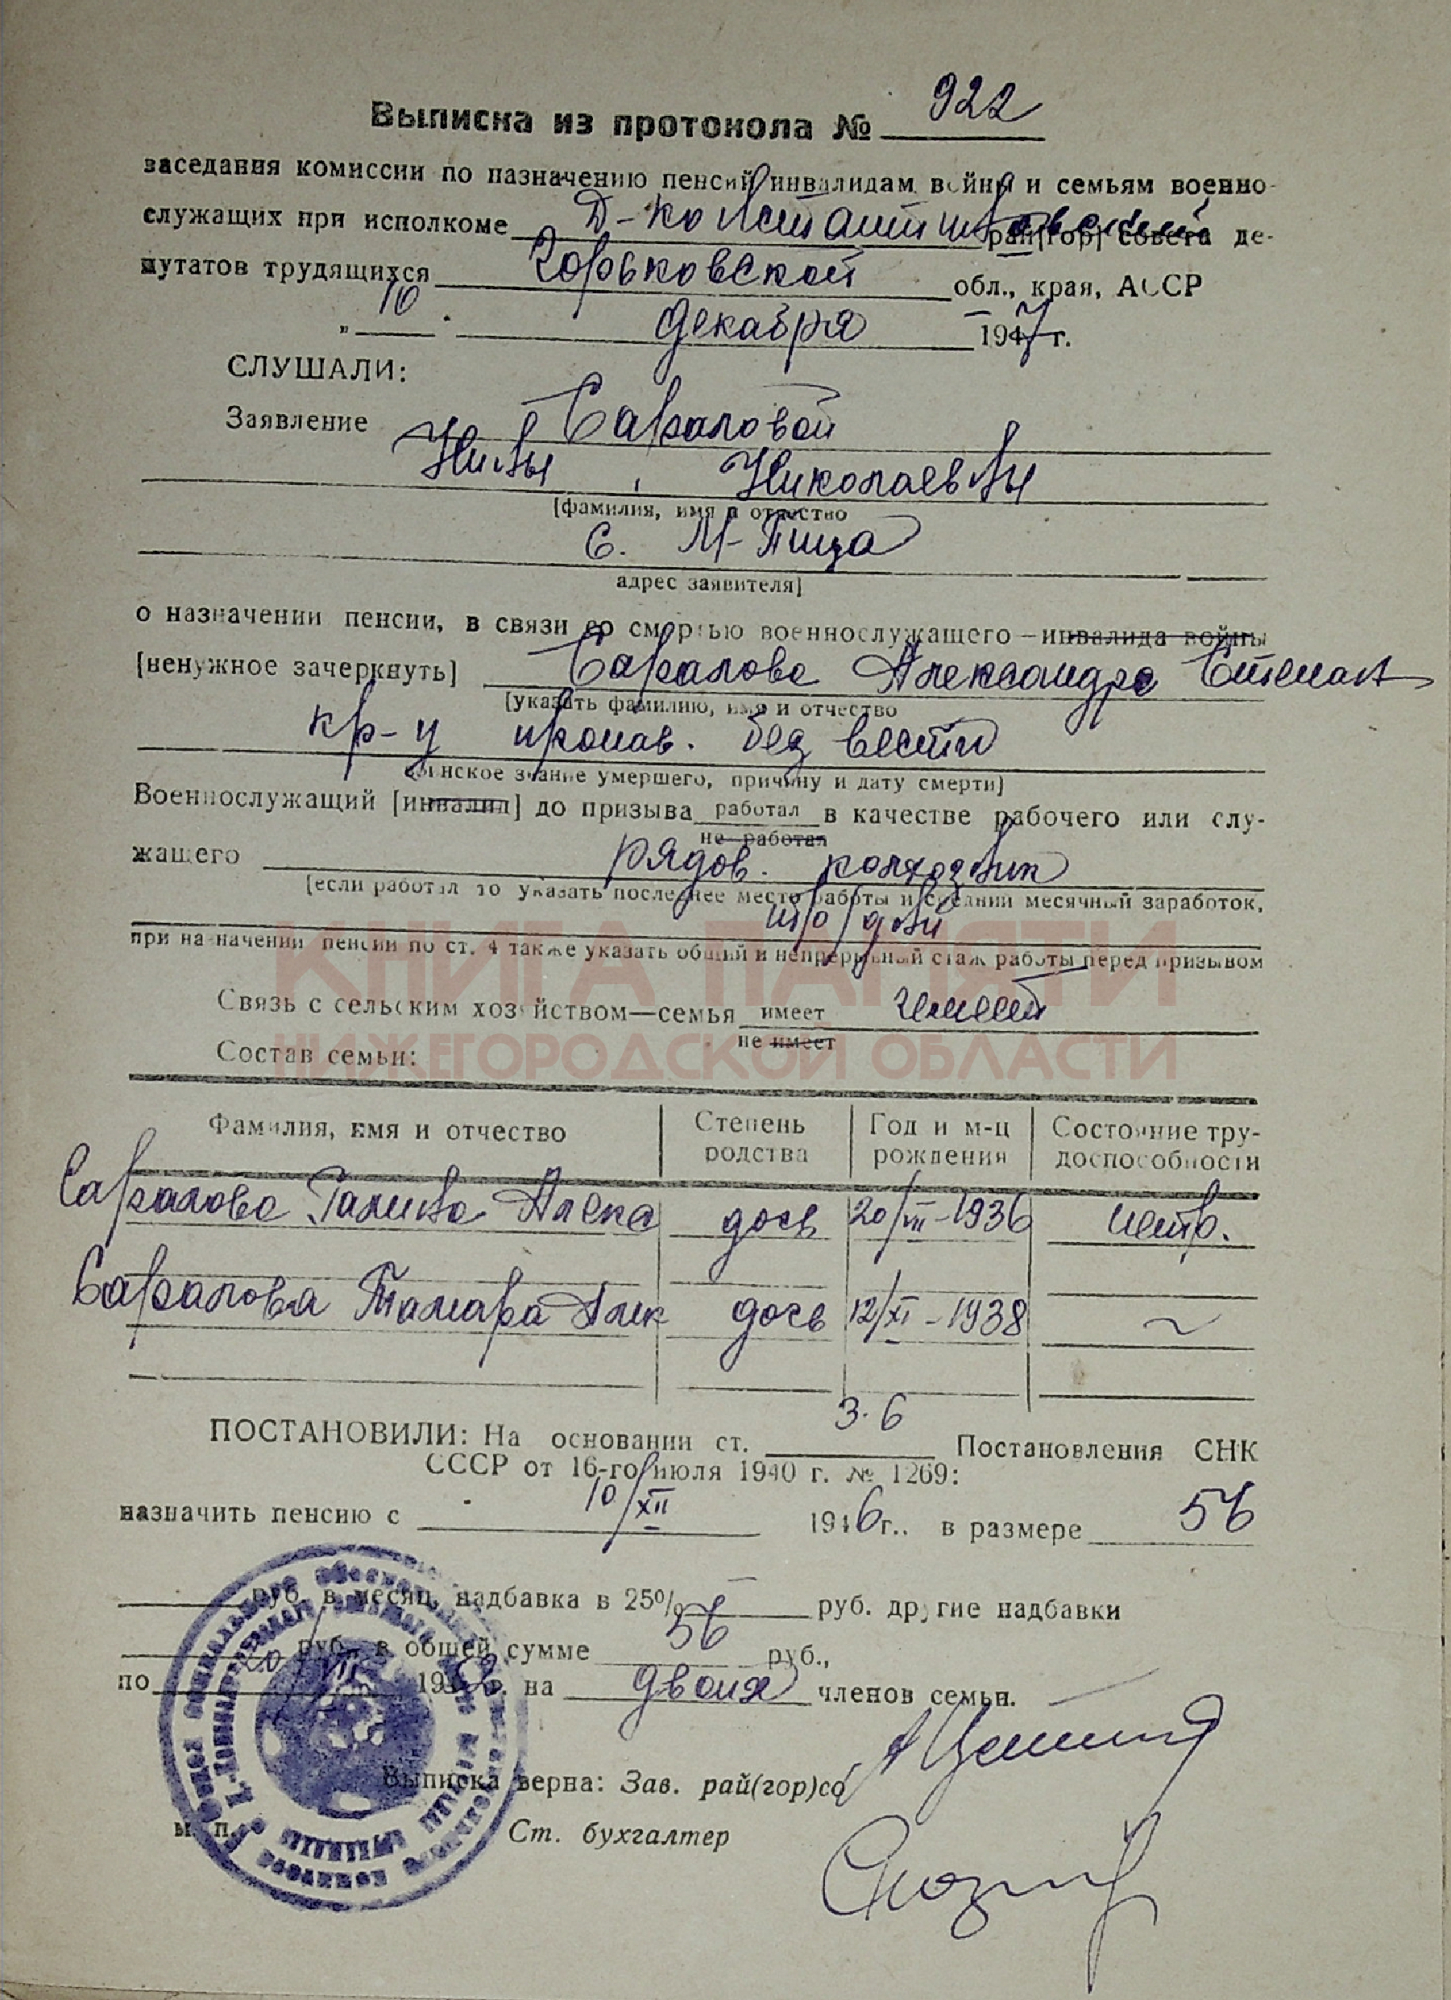 Выписка из протокола № 922
заседания комиссии по назначению пенсий инвалидам войны и семьям военно-
служащих при исполкоме Д-Константиновский рай[гор] совета де-
путатов трудящихся Горьковской обл., края, АССР
„ 10 " декабря 1947 г.
СЛУШАЛИ:
Заявление Сараловой
Нины Николаевны
[фамилия, имя и отчество
с. М-Пица
адрес заявителя]
о назначении пенсии, в связи со смертью военнослужащего — инвалида войны
[ненужное зачеркнуть] Саралова Александра Степан
[указать фамилию, имя и отчество
кр-ц пропав. без вести
воинское звание умершего, причину и дату смерти]
Военнослужащий [инвалид] до призыва работал в качестве рабочего или слу-
не работал
жащего рядов. колхозник
[если работал то указать последнее место работы и средний месячный заработок,
при назначении пенсии по ст. 4 также указать общий и непрерывный стаж работы перед призывом
КНИГА ПАМЯТИ
Связь с сельским хозяйством—семья имеет имеет
не имеет
НИЖЕГОРОДСКОЙ ОБЛАСТИ
Состав семьи:
Фамилия, имя и отчество Степень родства Год и м-ц рождения Состояние тру-доспособности
Саралова Галина Алекс дочь 20/VII-1936 нетр.
Саралова Тамара Алек дочь 12/XI-1938 ~
ПОСТАНОВИЛИ: На основании ст. 3.6 Постановления СНК
СССР от 16-го июля 1940 г. № 1269:
назначить пенсию с 10/XII 1946 г.. в размере 56
руб. в месяц, надбавка в 25% — руб. другие надбавки
руб., в общей сумме 56 руб.,
по 20/VII 195 г. на двоих членов семьи.
Выписка верна: Зав. рай(гор)со
м. п. Ст. бухгалтер